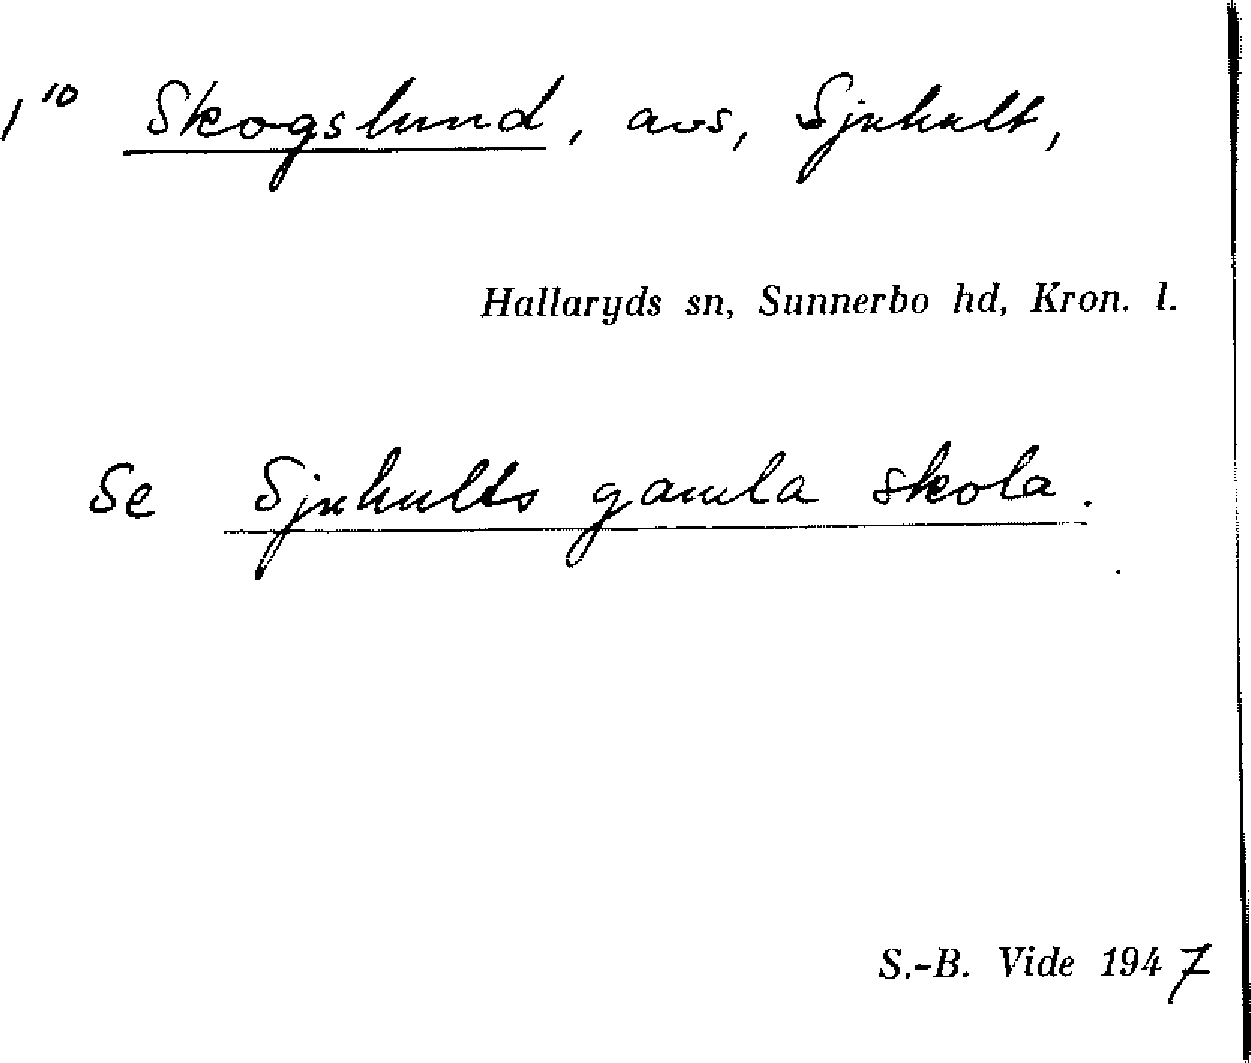 1¹⁰ Skogslund, avs, Sjuhult,
Hallaryds sn, Sunnerbo hd, Kron. l.
Se Sjuhults gamla skola.
S.-B. Vide 1947